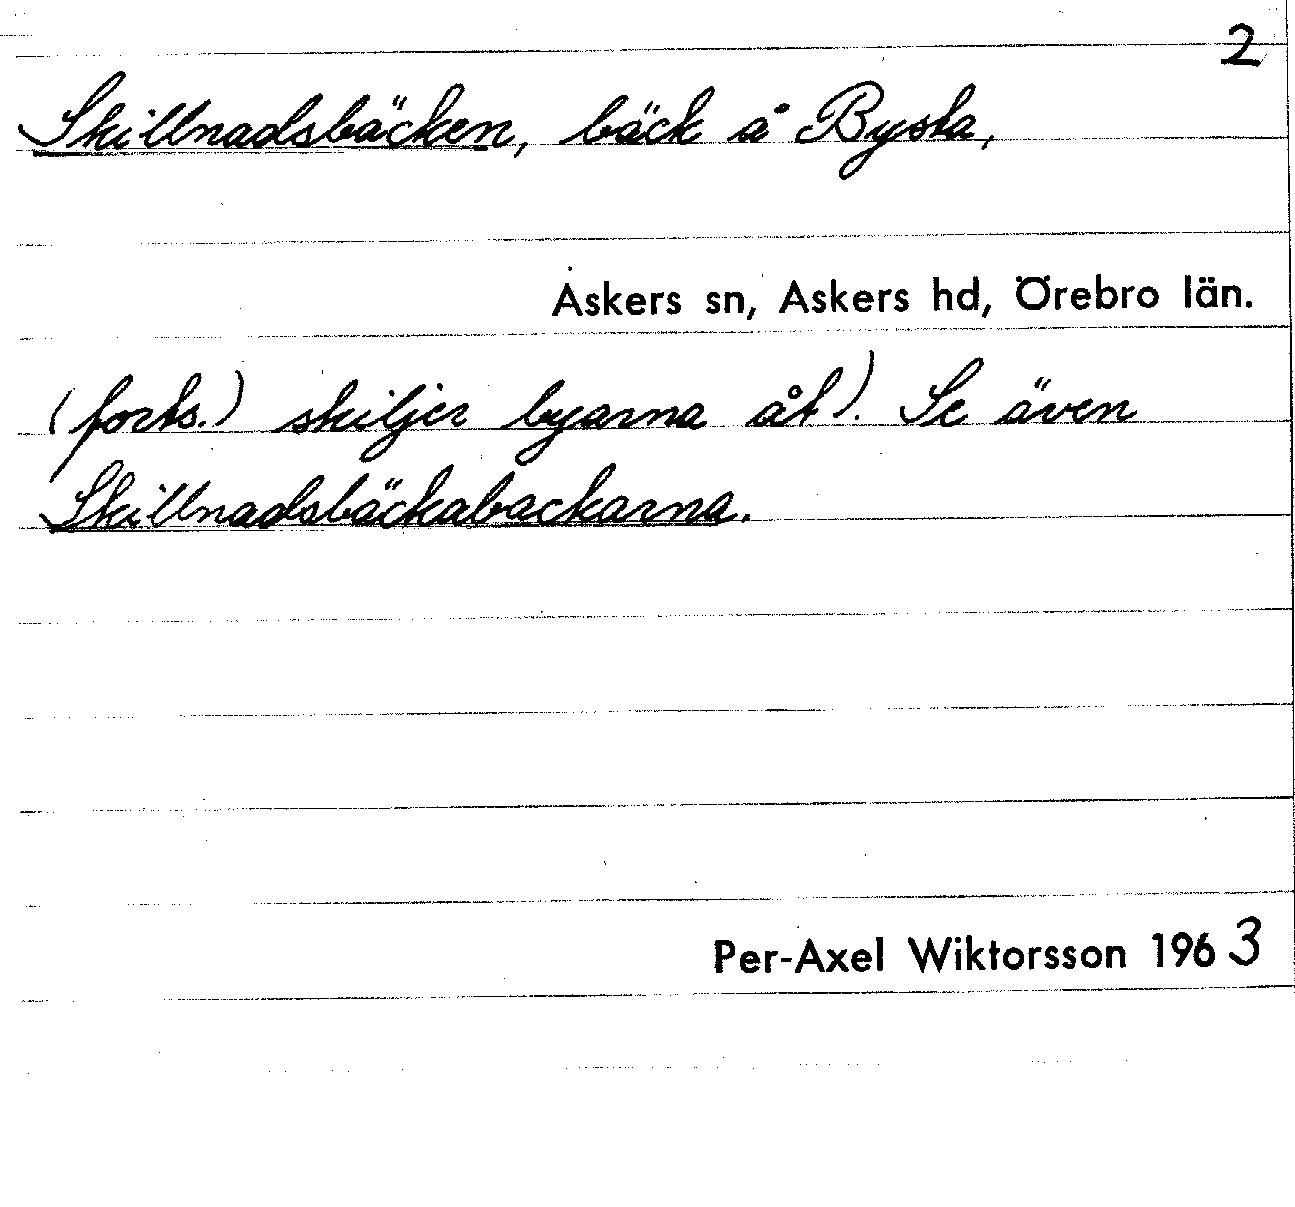 2
Skillnadsbäcken, bäck å Bysta,
Askers sn, Askers hd, Örebro län.
(forts.) skiljer byarna åt). Se även
Skillnadsbäckabackarna.
Per-Axel Wiktorsson 1963